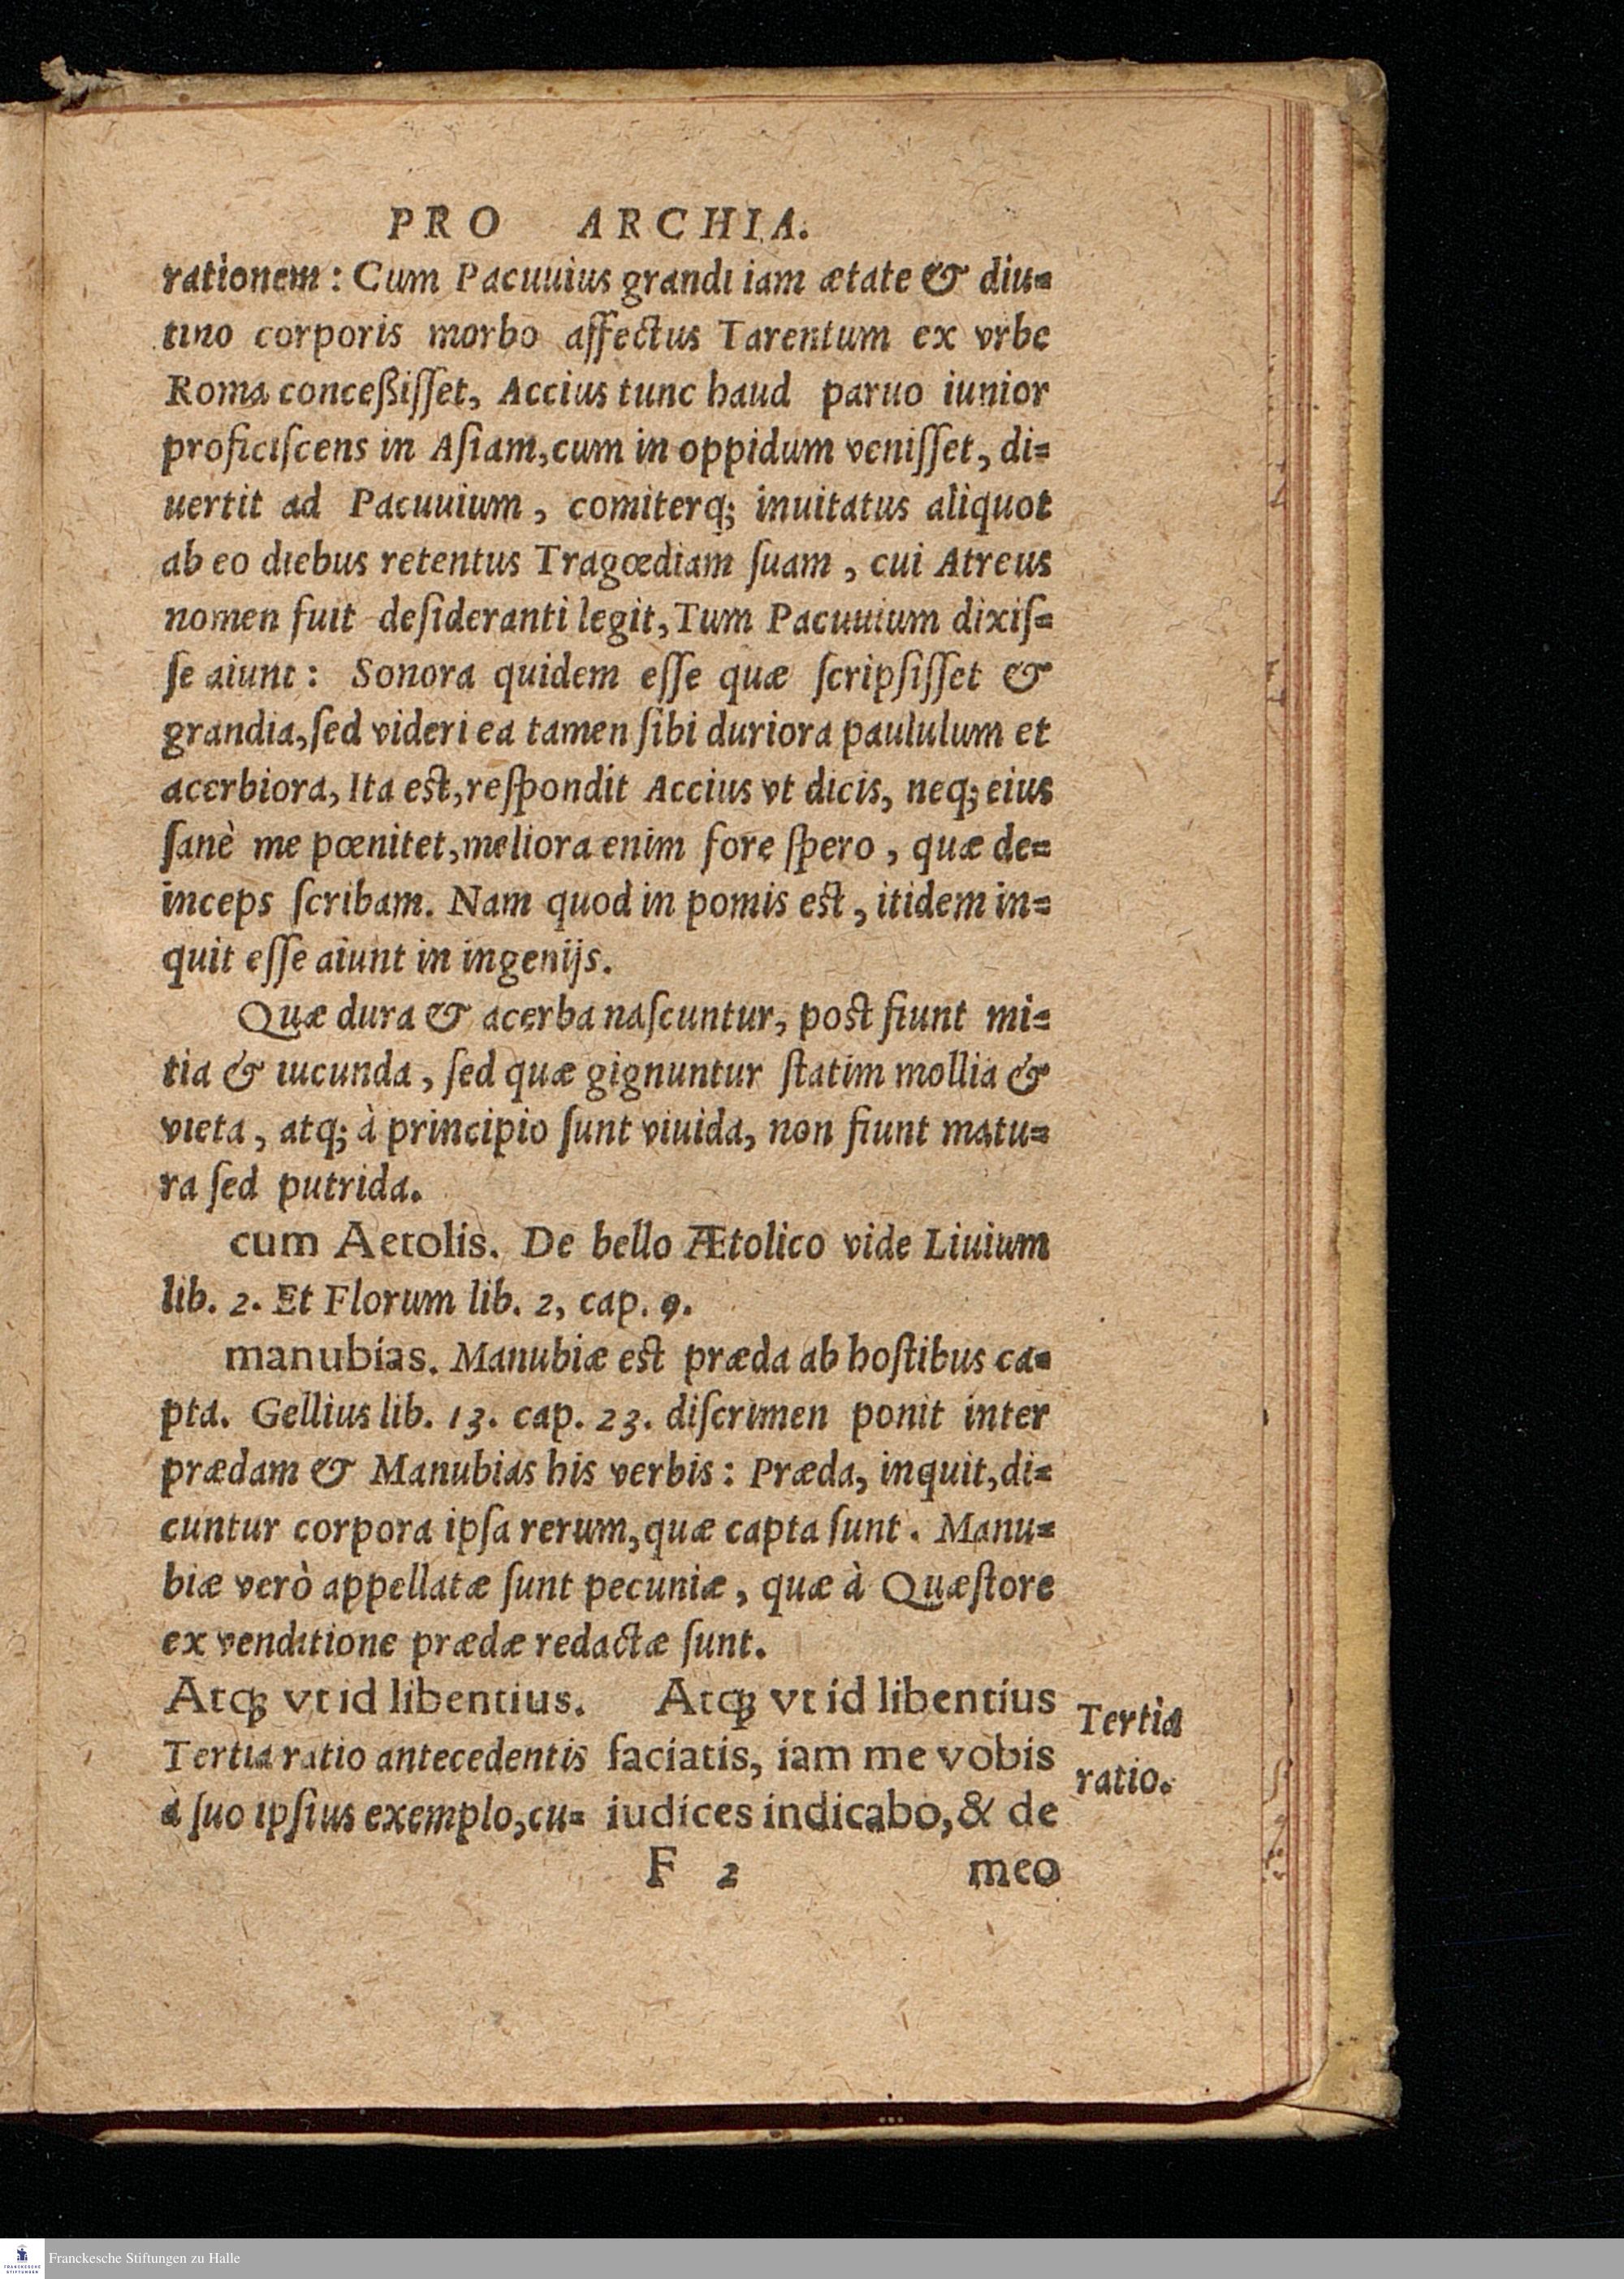 PRO ARCHIA.
rationem: Cum Pacuuius grandi iam ætate & diu=
tino corporis morbo affectus Tarentum ex vrbe
Roma conceßiſſet, Accius tunc haud paruo iunior
proficiſcens in Aſiam, cum in oppidum veniſſet, di=
uertit ad Pacuuium, comiterq; inuitatus aliquot
ab eo diebus retentus Tragœdiam ſuam, cui Atreus
nomen fuit deſideranti legit, Tum Pacuuium dixiſ=
ſe aiunt: Sonora quidem eſſe quæ ſcripſiſſet &
grandia, ſed videri ea tamen ſibi duriora paululum et
acerbiora, Ita est, reſpondit Accius vt dicis, neq; eius
ſanè me pœnitet, meliora enim fore ſpero, quæ de=
inceps ſcribam. Nam quod in pomis est, itidem in=
quit eſſe aiunt in ingenijs.
Quæ dura & acerba naſcuntur, post fiunt mi=
tia & iucunda, ſed quæ gignuntur ſtatim mollia &
vieta, atq; à principio ſunt viuida, non fiunt matu=
ra ſed putrida.
cum Aetolis. De bello Ætolico vide Liuium
lib. 2. Et Florum lib. 2, cap. 9.
manubias. Manubiæ est præda ab hoſtibus ca=
pta. Gellius lib. 13. cap. 23. diſcrimen ponit inter
prædam & Manubias his verbis: Præda, inquit, di=
cuntur corpora ipſa rerum, quæ capta ſunt. Manu=
biæ verò appellatæ ſunt pecuniæ, quæ à Quæſtore
ex venditione prædæ redactæ ſunt.
Atq; vt id libentius.
Tertia ratio antecedentis
à ſuo ipſius exemplo, cu=
Atq; vt id libentius
faciatis, iam me vobis
iudices indicabo, & de
Tertia
ratio.
F 2
meo
Franckesche Stiftungen zu Halle
FRANCKESCHE
STIFTUNGEN